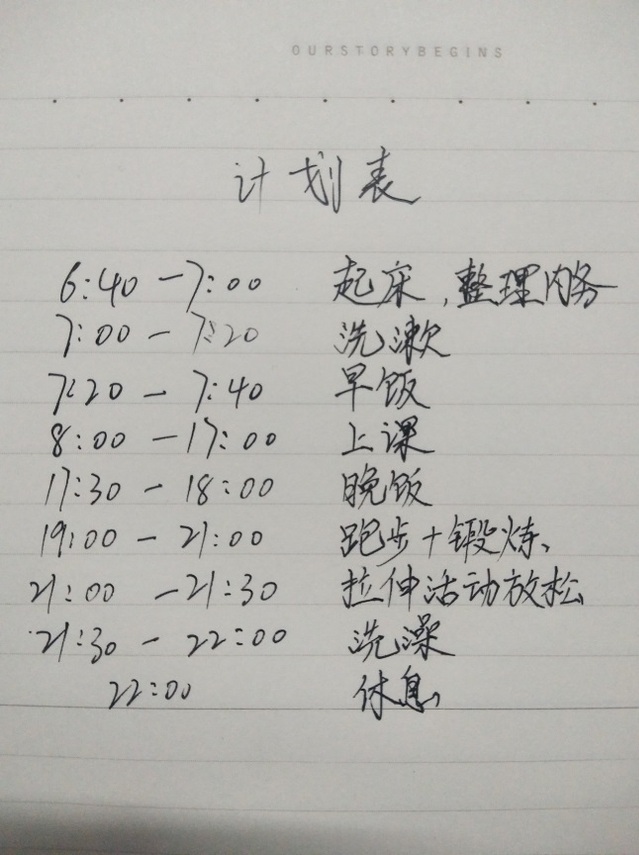 OURSTORYBEGINS
计划表
6:40 — 7:00 起床,整理内务
7:00 — 7:20 洗漱
7:20 — 7:40 早饭
8:00 — 17:00 上课
17:30 — 18:00 晚饭
19:00 — 21:00 跑步+锻炼、
21:00 — 21:30 拉伸活动放松
21:30 — 22:00 洗澡
22:00 休息